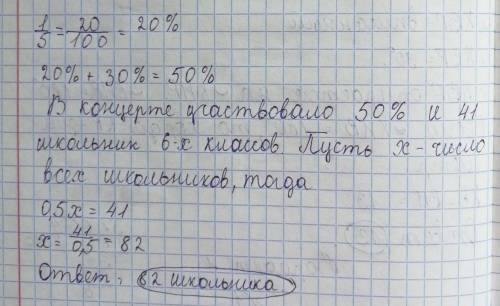 1/5 = 20/100 = 20%
20% + 30% = 50%
В концерте участвовало 50% и 41
школьник 6-х классов. Пусть x - число
всех школьников, тогда
0,5x = 41
x = 41/0,5 = 82
Ответ: 82 школьника